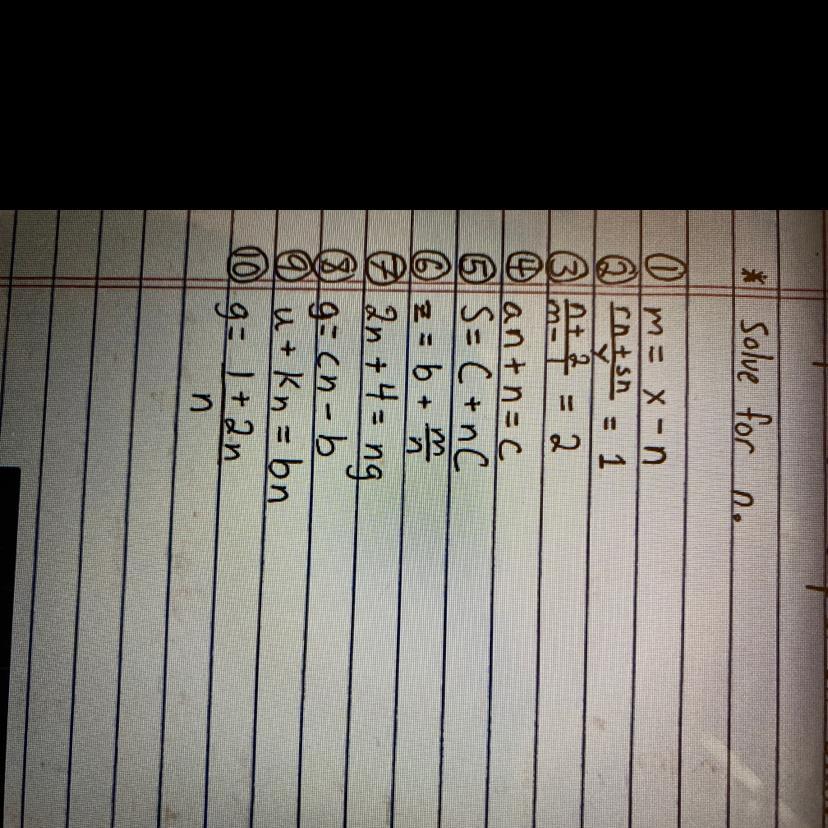 * Solve for n.
① m = x - n
② rn + sn / y = 1
③ n + 2 / m - 1 = 2
④ an + n = c
⑤ S = C + nC
⑥ z = b + m/n
⑦ 2n + 4 = ng
⑧ g = cn - b
⑨ u + kn = bn
⑩ g = 1 + 2n / n